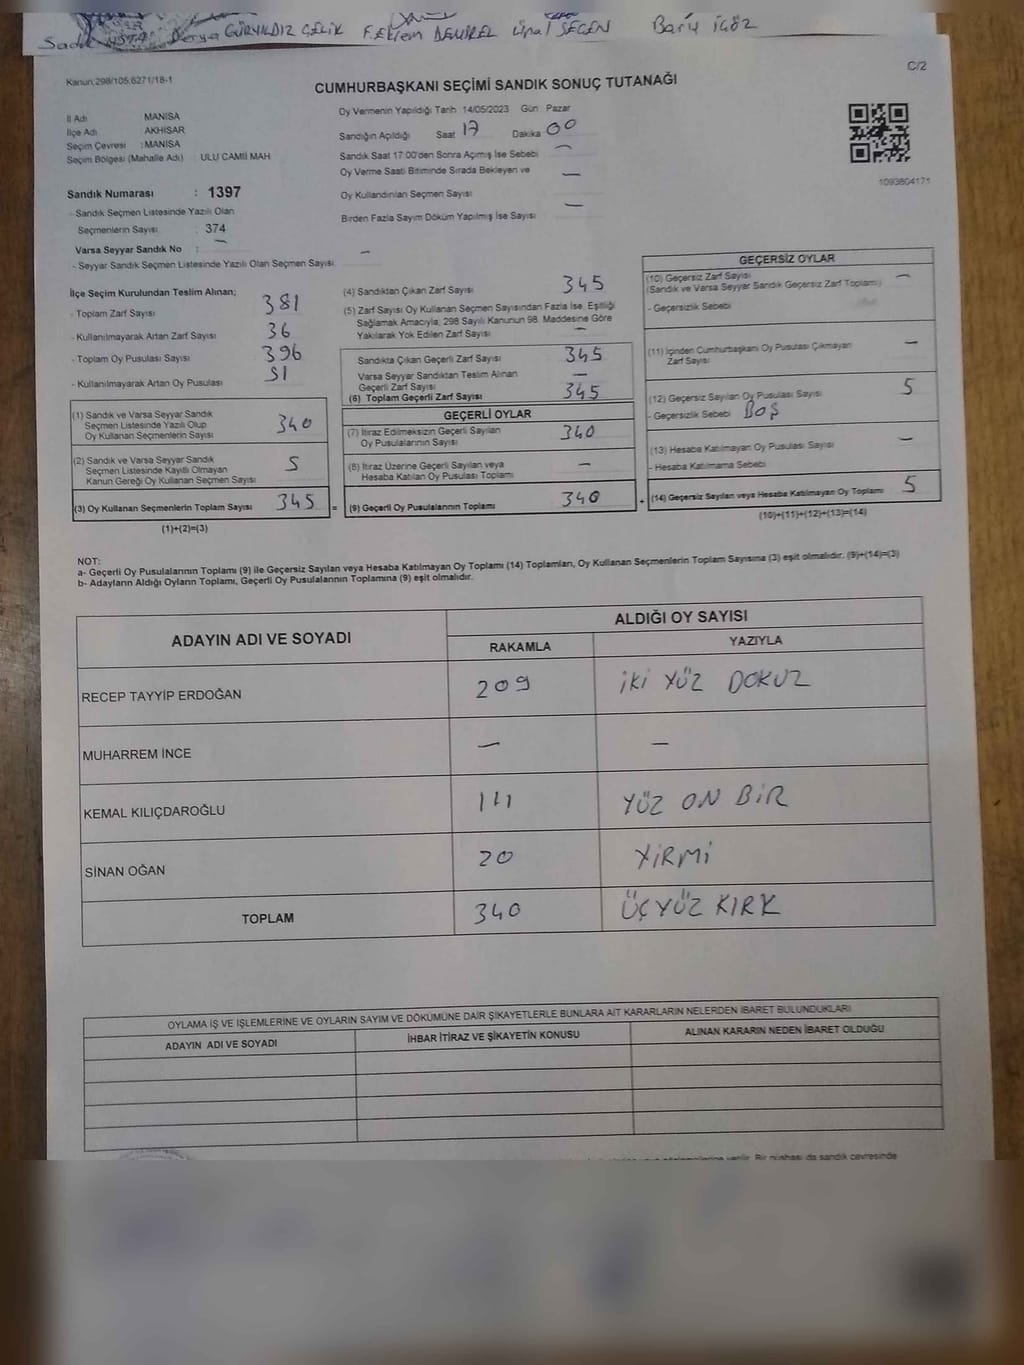 Derya GÜRYILDIZ ÇELİK F. Ekrem DEMİREL Ünal SEÇEN Barış İÇÖZ
Kanun:298/105,6271/18-1
C/2
CUMHURBAŞKANI SEÇİMİ SANDIK SONUÇ TUTANAĞI
İl Adı MANİSA
İlçe Adı AKHİSAR
Seçim Çevresi : MANİSA
Seçim Bölgesi (Mahalle Adı) ULU CAMİİ MAH
Oy Vermenin Yapıldığı Tarih 14/05/2023 Gün: Pazar
Sandığın Açıldığı Saat 17 Dakika 00
Sandık Saat 17:00'den Sonra Açımış İse Sebebi —
Oy Verme Saati Bitiminde Sırada Bekleyen ve
Oy Kullandırılan Seçmen Sayısı —
Birden Fazla Sayım Döküm Yapılmış İse Sayısı —
1093804171
Sandık Numarası : 1397
- Sandık Seçmen Listesinde Yazılı Olan
Seçmenlerin Sayısı : 374
Varsa Seyyar Sandık No : —
- Seyyar Sandık Seçmen Listesinde Yazılı Olan Seçmen Sayısı —
İlçe Seçim Kurulundan Teslim Alınan;
- Toplam Zarf Sayısı 381
- Kullanılmayarak Artan Zarf Sayısı 36
- Toplam Oy Pusulası Sayısı 396
- Kullanılmayarak Artan Oy Pusulası 51
(1) Sandık ve Varsa Seyyar Sandık
Seçmen Listesinde Yazılı Olup
Oy Kullanan Seçmenlerin Sayısı 340
(2) Sandık ve Varsa Seyyar Sandık
Seçmen Listesinde Kayıtlı Olmayan
Kanun Gereği Oy Kullanan Seçmen Sayısı 5
(3) Oy Kullanan Seçmenlerin Toplam Sayısı 345 =
(1)+(2)=(3)
(4) Sandıktan Çıkan Zarf Sayısı 345
(5) Zarf Sayısı Oy Kullanan Seçmen Sayısından Fazla İse, Eşitliği
Sağlamak Amacıyla, 298 Sayılı Kanunun 98. Maddesine Göre
Yakılarak Yok Edilen Zarf Sayısı —
Sandıkta Çıkan Geçerli Zarf Sayısı 345
Varsa Seyyar Sandıktan Teslim Alınan
Geçerli Zarf Sayısı —
(6) Toplam Geçerli Zarf Sayısı 345
GEÇERLİ OYLAR
(7) İtiraz Edilmeksizin Geçerli Sayılan
Oy Pusulalarının Sayısı 340
(8) İtiraz Üzerine Geçerli Sayılan veya
Hesaba Katılan Oy Pusulası Toplamı —
(9) Geçerli Oy Pusulalarının Toplamı 340 +
GEÇERSİZ OYLAR
(10) Geçersiz Zarf Sayısı —
(Sandık ve Varsa Seyyar Sandık Geçersiz Zarf Toplamı)
- Geçersizlik Sebebi
(11) İçinden Cumhurbaşkanı Oy Pusulası Çıkmayan
Zarf Sayısı —
(12) Geçersiz Sayılan Oy Pusulası Sayısı 5
- Geçersizlik Sebebi BOŞ
(13) Hesaba Katılmayan Oy Pusulası Sayısı —
- Hesaba Katılmama Sebebi
(14) Geçersiz Sayılan veya Hesaba Katılmayan Oy Toplamı 5
(10)+(11)+(12)+(13)=(14)
NOT:
a- Geçerli Oy Pusulalarının Toplamı (9) ile Geçersiz Sayılan veya Hesaba Katılmayan Oy Toplamı (14) Toplamları, Oy Kullanan Seçmenlerin Toplam Sayısına (3) eşit olmalıdır. (9)+(14)=(3)
b- Adayların Aldığı Oyların Toplamı, Geçerli Oy Pusulalarının Toplamına (9) eşit olmalıdır.
ADAYIN ADI VE SOYADI ALDIĞI OY SAYISI
RAKAMLA YAZIYLA
RECEP TAYYİP ERDOĞAN 209 İKİ YÜZ DOKUZ
MUHARREM İNCE — —
KEMAL KILIÇDAROĞLU 111 YÜZ ON BİR
SİNAN OĞAN 20 YİRMİ
TOPLAM 340 ÜÇYÜZ KIRK
OYLAMA İŞ VE İŞLEMLERİNE VE OYLARIN SAYIM VE DÖKÜMÜNE DAİR ŞİKAYETLERLE BUNLARA AİT KARARLARIN NELERDEN İBARET BULUNDUKLARI
ADAYIN ADI VE SOYADI İHBAR İTİRAZ VE ŞİKAYETİN KONUSU ALINAN KARARIN NEDEN İBARET OLDUĞU
Bir nüshası da sandık çevresinde